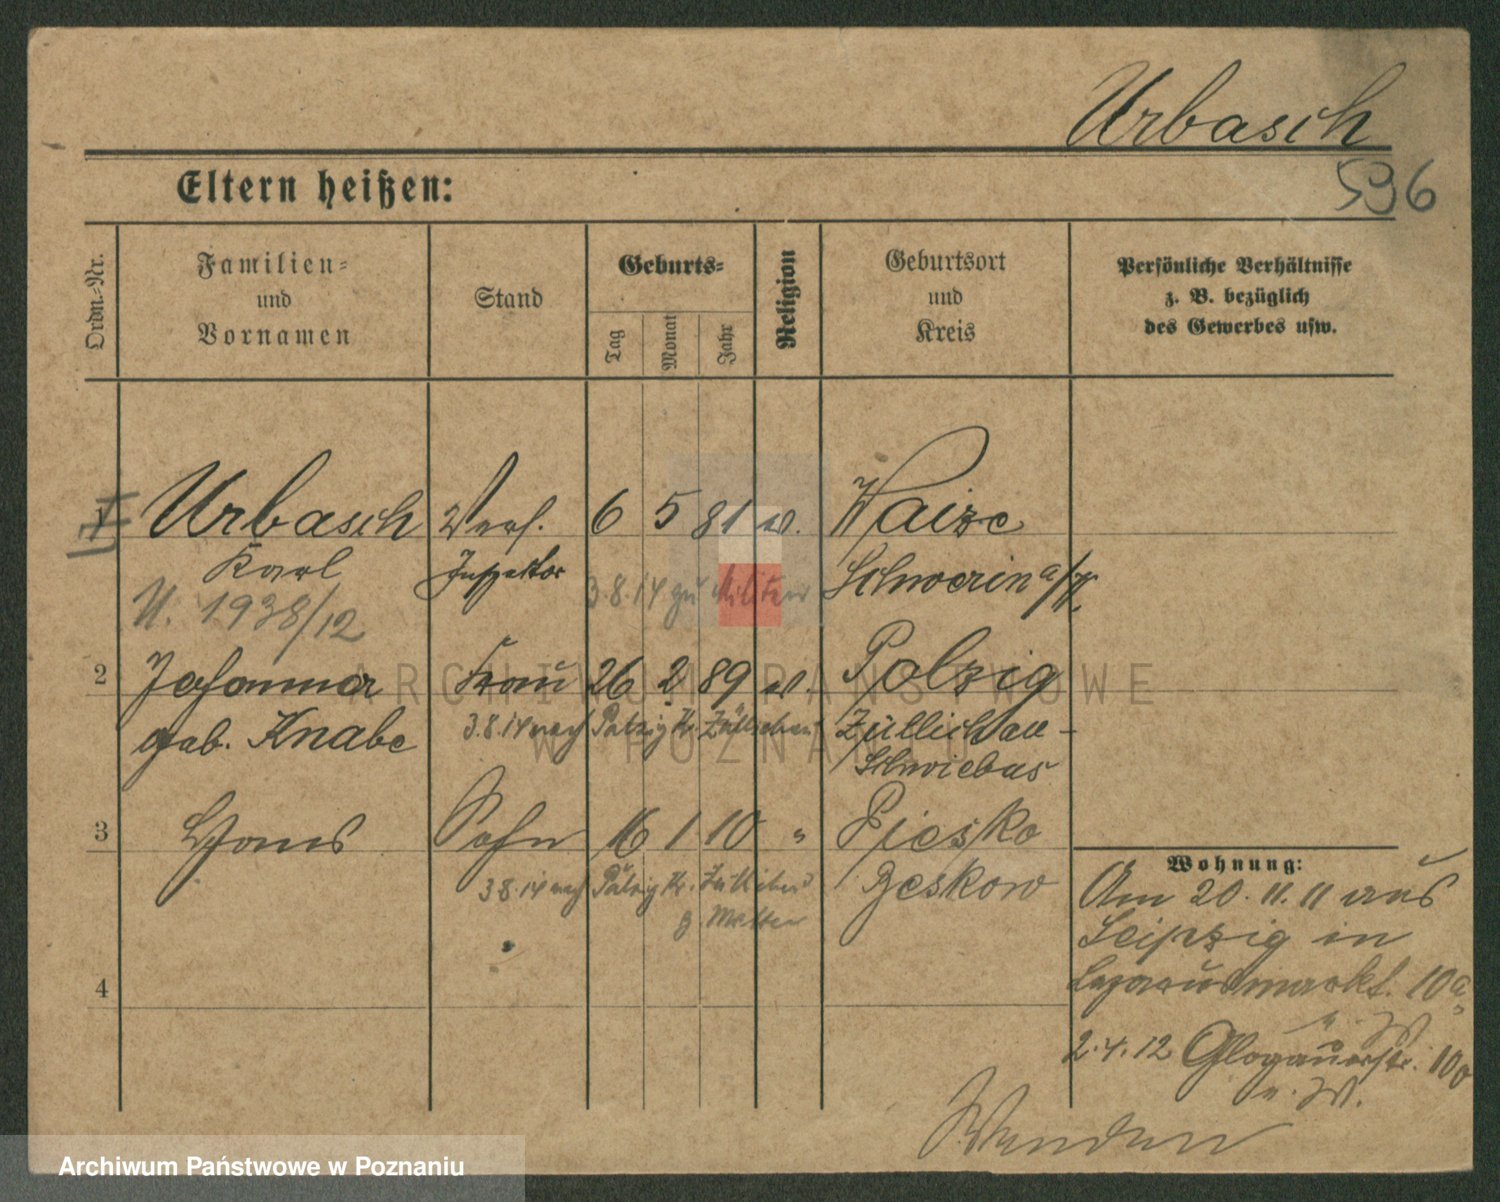 Urbasch
596
Eltern heißen:
Ordn.-Nr.
Familien-
und
Vornamen
Stand
Geburts-
Tag
Monat
Jahr
Religion
Geburtsort
und
Kreis
Persönliche Verhältnisse
z. B. bezüglich
des Gewerbes usw.
1 Urbasch Vers. 6 5 81 ev. Waize
Karl Inspektor 3.8.14 zu Militär Schwerin a/W.
U. 1938/12
2 Johanna Frau 26 2 89 ev. Polzig
geb. Knabe 3.8.14 nach Kr. Züllichau Züllichau-
Schwiebus
3 Hans Sohn 16 1 10 " Pieskо
3.8.14 nach Kr. Beskow
z. Mutter
4
Wohnung:
Am 20.11.11 aus
Leipzig in
Lazarusmarkt. 10a
2.4.12 Glogauerstr. 100
b. W.
Wenden
ARCHIWUM PAŃSTWOWE
W POZNANIU
Archiwum Państwowe w Poznaniu